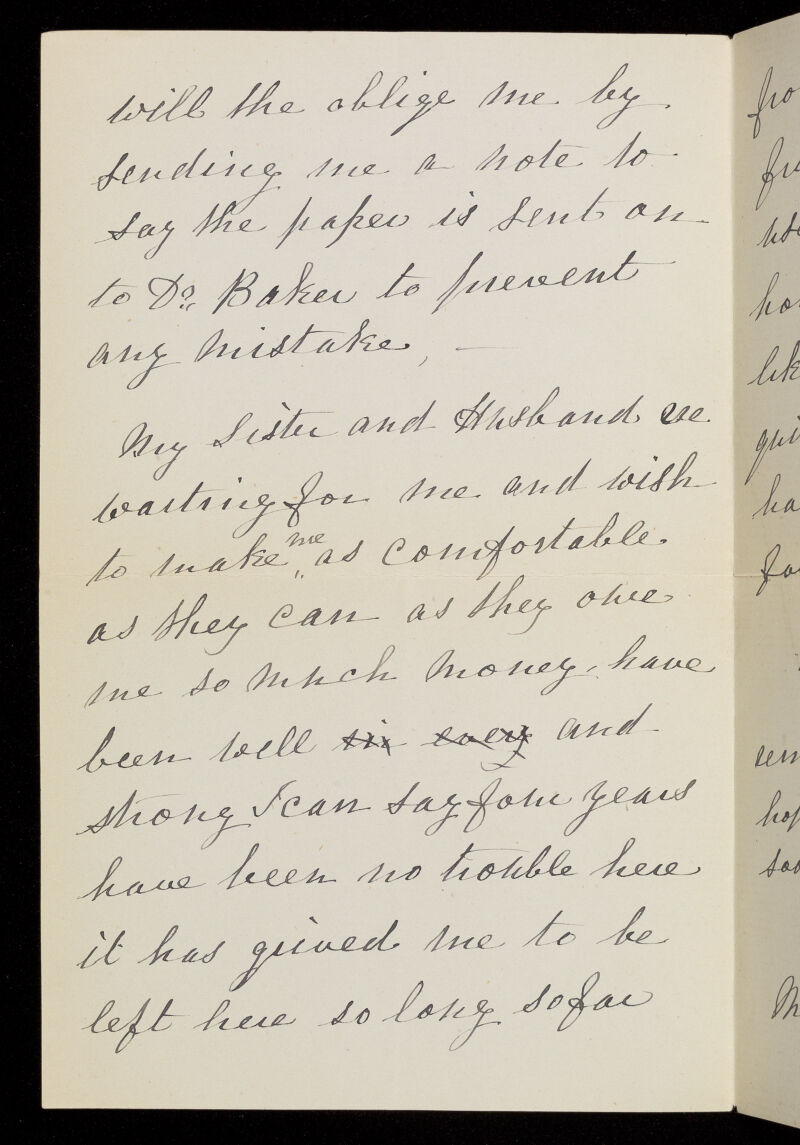 will the oblige me by
sending me a note to
say the paper is sent on
to Dr. Baker to prevent
any mistake, —
My Sister and Husband are
waiting for me and wish
to make me as comfortable
as they can as they owe
me so much money, have
been well six every and
strong I can say four years
have been no trouble here
it has grived me to be
left here so long so far